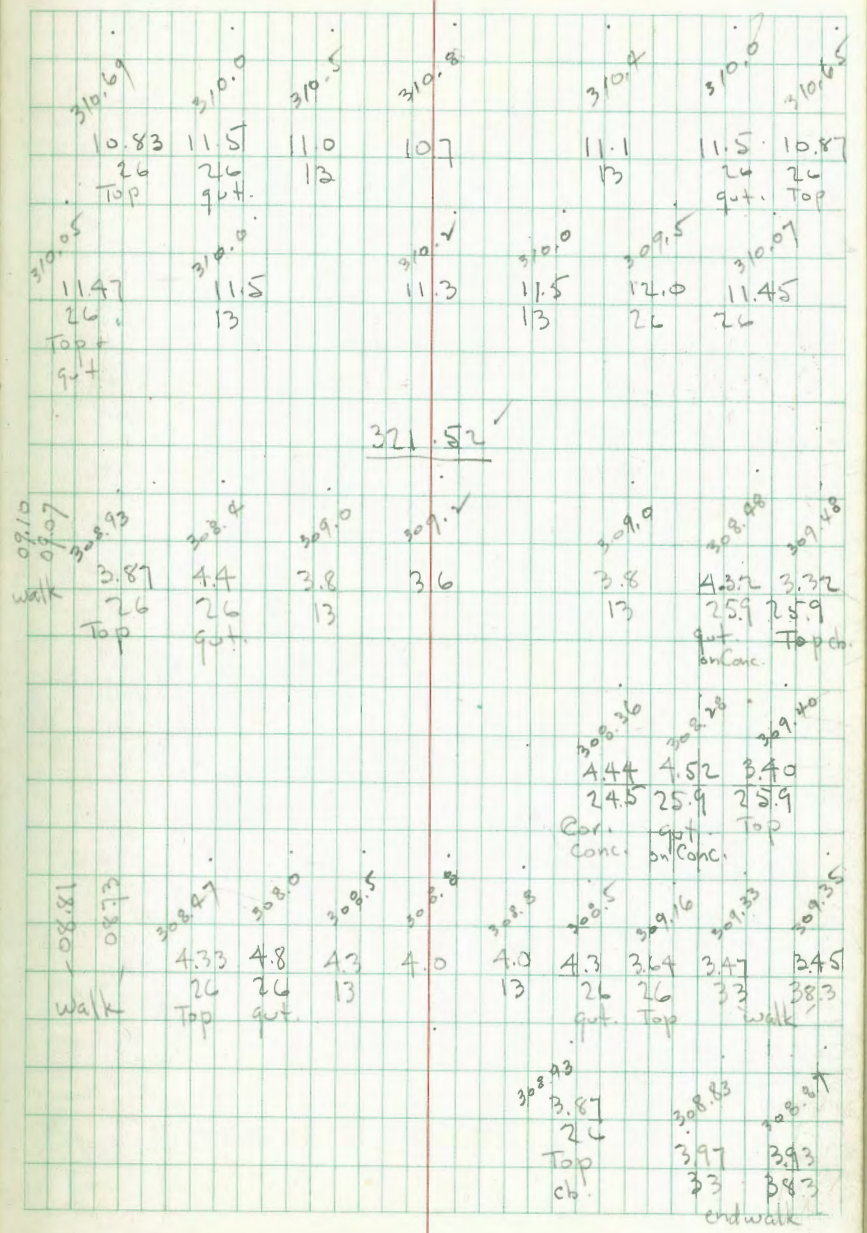 310.69 310.0 310.5 310.8 310.4 310.0 310.65
10.83 11.5 11.0 10.7 11.1 11.5 10.87
26 26 13 13 26 26
Top gut. gut. Top
310.05 310.0 310.2 310.0 309.5 310.07
11.47 11.5 11.3 11.5 12.0 11.45
26 13 13 26 26
Top +
gut
321.52 ✓
09.10 09.07 308.93 308.4 309.0 309.2 309.0 308.48 309.48
walk 3.87 4.4 3.8 3.6 3.8 4.32 3.32
26 26 13 13 25.9 25.9
Top gut. gut. Top cb.
on Conc.
308.36 308.28 309.40
4.44 4.52 3.40
24.5 25.9 25.9
Cor. gut. Top
Conc. on Conc.
08.81 08.73 308.47 308.0 308.5 308.8 308.8 308.5 309.16 309.33 309.35
4.33 4.8 4.3 4.0 4.0 4.3 3.64 3.47 3.45
26 26 13 13 26 26 33 38.3
walk Top gut. gut. Top walk
308.93 308.83 308.87
3.87
26
Top 3.97 3.93
cb. 33 38.3
end walk